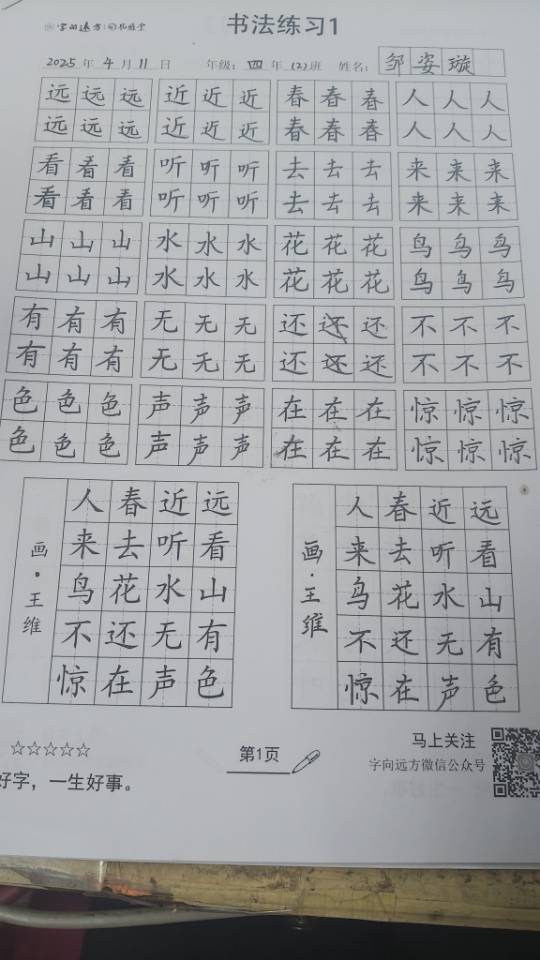 字向远方 礼雅堂
书法练习1
2025 年 4 月 11 日 年级: 四 年 (2) 班 姓名: 邹姿璇
远 远 远 近 近 近 春 春 春 人 人 人
远 远 远 近 近 近 春 春 春 人 人 人
看 看 看 听 听 听 去 去 去 来 来 来
看 看 看 听 听 听 去 去 去 来 来 来
山 山 山 水 水 水 花 花 花 鸟 鸟 鸟
山 山 山 水 水 水 花 花 花 鸟 鸟 鸟
有 有 有 无 无 无 还 还 还 不 不 不
有 有 有 无 无 无 还 还 还 不 不 不
色 色 色 声 声 声 在 在 在 惊 惊 惊
色 色 色 声 声 声 在 在 在 惊 惊 惊
远看山有色
近听水无声
春去花还在
人来鸟不惊
画·王维
远看山有色
近听水无声
春去花还在
人来鸟不惊
画·王维
☆☆☆☆☆
好字，一生好事。
第1页
马上关注
字向远方微信公众号